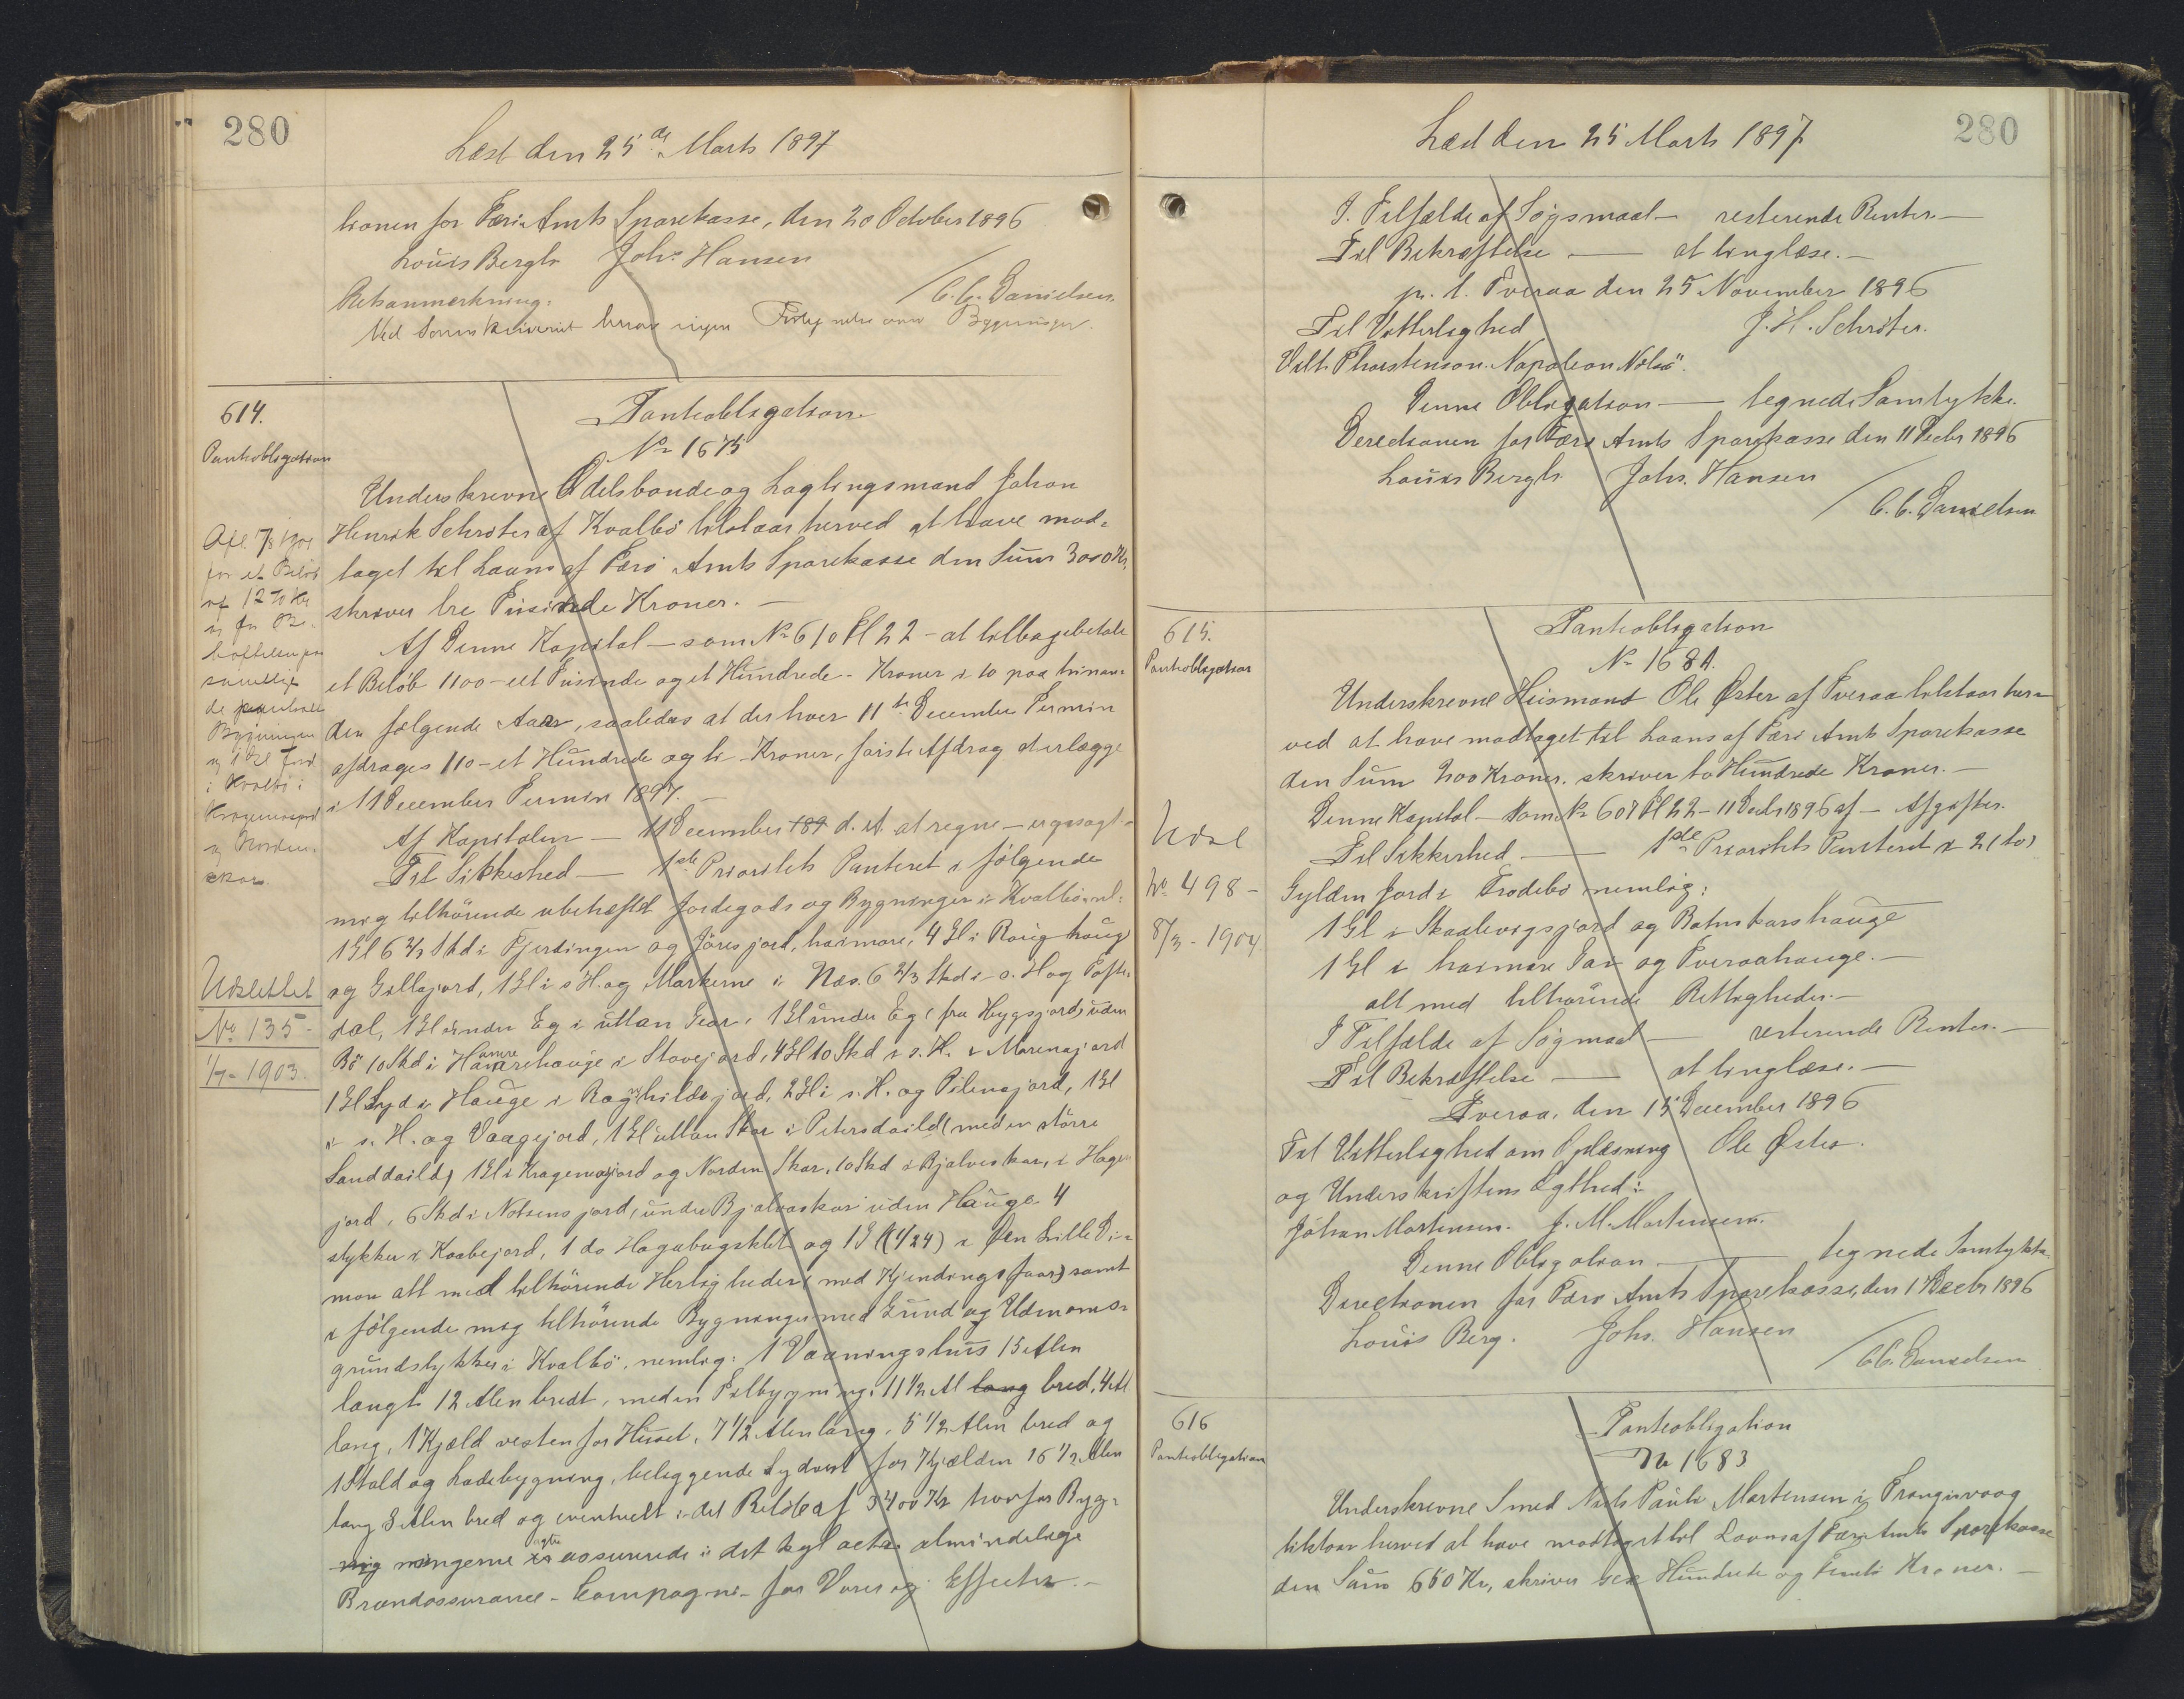 280
Læst den 25de Marts 1897
tionen for Færø Amts Sparekasse, den 20 October 1896
Louis Bergh Johs Hansen
C. C. Danielsen
Retsanmærkning:
Ved Sorenskriveriet haves ingen over Bygninger.
614.
Panteobligation
Panteobligation
No 1675
Underskrevne Odelsbonde og Lagtingsmand Johan
Henrik Schröter af Kvalbö tilstaar herved at have mod-
taget til Laans af Færö Amts Sparekasse den Sum 3000 Kr,
skriver tre Tusinde Kroner. —
Af Denne Kapital — som No 610 Fl 22 — at tilbagebetale
et Belöb 1100 - eet Tusinde og et Hundrede - Kroner i 10 paa hinan-
den fölgende Aar, saaledes at der hver 11te December Termin
afdrages 110 - et Hundrede og ti - Kroner, förste Afdrag at erlægge
i 11 December Termin 1897. —
Af Kapitalen — 11 December 189 d. A. at regne — opsagt. -
Til Sikkerhed — 1ste Prioritets Panteret i fölgende
mig tilhörende ubehæftet Jordegods og Bygninger i Kvalbö, nl:
1 Gl 6 2/3 Skd i Fjerdingen og Jörsjord, haimare, 4 Gl i Roughaug
og Gillajord, 1 Gl i s H. og Markerne i Næs. 6 2/3 Skd i s. H og Tofte-
dal, 1 Gl under Eg i uttan Gear, 1 Gl under Eg (fra Hygsjord) uden
Bö 10 Skd i Hamrehauge i Stovejord, 4 Gl 10 Skd i s. H. i Marenajord
1 Gl Syd i Hauge i Ragnhildsjord, 2 Gl i s. H. og Pilensjord, 1 Gl
i s. H. og Vaagejord, 1 Gl uttan Skar i Petersdaild (med en större
Sanddaild) 1 Gl i Kragensjord og Norden Skar, 10 Skd i Bjalveskar, i Hage-
jord, 6 Skd i Nolsensjord, under Bjalvaskar uden Hauge 4
stykker i Koabejord, 1 do Hagabugsklet og 1 G (1/24) i Den Lille Di-
mon alt med tilhörende Herligheder (med Kjendings faar) samt
i fölgende mig tilhörende Bygninger med Grund og Udenoms-
grundstykker i Kvalbö, nemlig: 1 Vaaningshus 15 Alen
langt 12 Alen bredt, med en Tilbygning: 11 1/2 Al lang bred, 4 Al
lang, 1 Kjæld vesten for Huset, 7 1/2 Alen lang, 5 1/2 Alen bred og
1 Stald og Ladebygning, beliggende Sydvest for Kjælden 16 1/2 Alen
lang 8 Alen bred og eventuelt i det Belöb af 3400 Kr hvorfor Byg-
nig ningerne er assurerede i det kgl octr. almindelige
Brandassurance - Compagni - for Varer og Effecter. —
Afl. 7/8 1901
for et Belöb
af 1270 Kr
og fra Be-
hæftelsen paa
samtlige
de pantsatte
Bygninger
og 1 Gl Jord
i Kvalbö i
Kragensjord
og Norden-
skar.
Udslettet
No 135 -
1/7 - 1903.
280
Læst den 25 Marts 1897
I. Tilfælde af Sögsmaal — resterende Renter —
Til Bekræftelse — at tinglæse. —
p. t. Tveraa den 25 November 1896
Til Vitterlighed J. H. Schröter.
Vilh. Thorstenson. Napoleon Nolsö.
Denne Obligation — tegnede Samtykke.
Directionen for Færö Amts Sparekasse den 11 Decbr 1896
Louis Bergh Johs. Hansen
C. C. Danielsen
615.
Panteobligation
Panteobligation
No 1681.
Underskrevne Husmand Ole Øster af Tveraa tilstaar her-
ved at have modtaget til Laans af Færö Amts Sparekasse
den Sum 200 Kroner, skriver to Hundrede Kroner. —
Denne Kapital — som No 607 Fl 22 — 11 Decbr 1896 af — Afgifter.
Til Sikkerhed — 1ste Prioritets Panteret i 2 (to)
Gylden Jord i Frodebö nemlig:
1 Gl i Skaalevigsjord og Botnskarshauge
1 Gl i haimare Tax og Tveraahauge. —
alt med tilhörende Rettigheder. —
I Tilfælde af Sögmaal — resterende Renter. —
Til Bekræftelse — at tinglæse. —
Tveraa, den 15 December 1896
Til Vitterlighed om Oplæsning Ole Øster.
og Underskriftens Ægthed:
Johan Mortensen. J. M. Mortensen.
Denne Obligation — tegnede Samtykke.
Directionen for Færö Amts Sparekasse, den 17 Decbr 1896
Louis Berg. Johs. Hansen
C. C. Danielsen
Udsl
No 498 -
8/3 - 1904
616
Panteobligation
Panteobligation
No 1683
Underskrevne Smed Niels Pauli Mortensen i Trangisvaag
tilstaar herved at have modtaget til Laans af Færö Amts Sparekasse
den Sum 650 Kr, skriver sex Hundrede og Femti Kroner. —